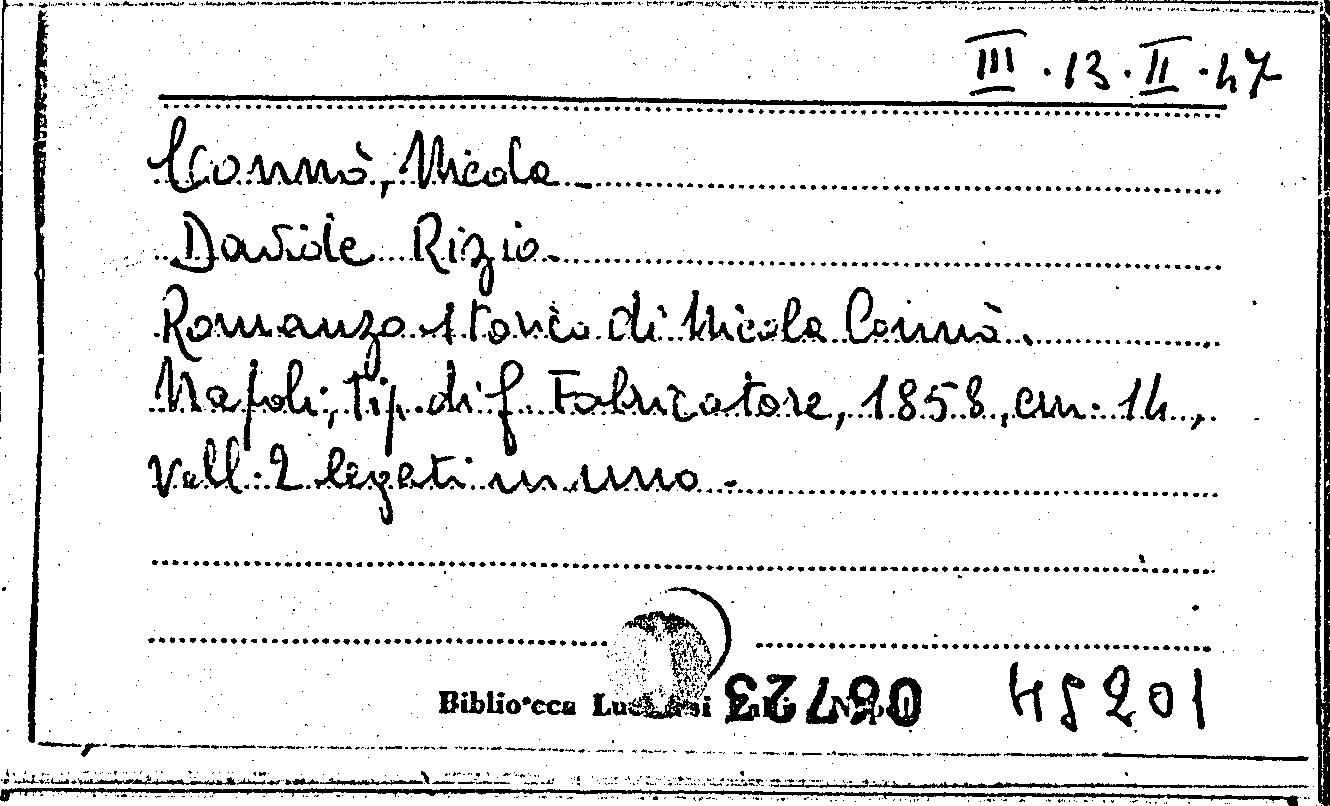 III.13.II.47
Connò, Nicola
Davide Rizio.
Romanzo storico di Nicola Connò.
Napoli, tip. di f. Fabricatore, 1858, cm. 14,
Voll. 2 legati in uno.
Biblioteca
45201